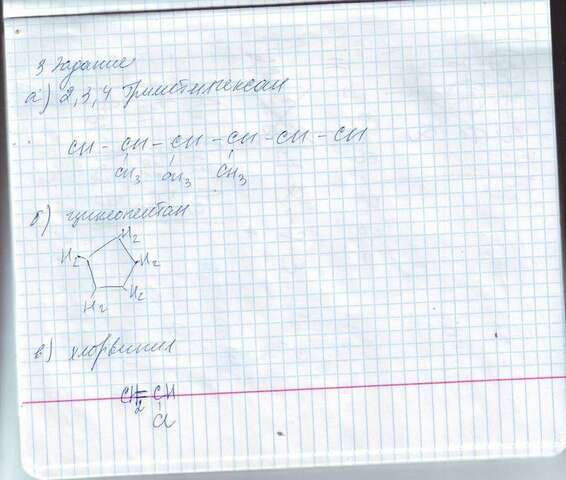 3 Задание
а) 2,3,4 Триметилгексан
CH - CH - CH - CH - CH - CH
CH3 CH3 CH3
б) циклопентан
H2
H2 H2
H2 H2
в) хлорвинил
CH2=CH
Cl